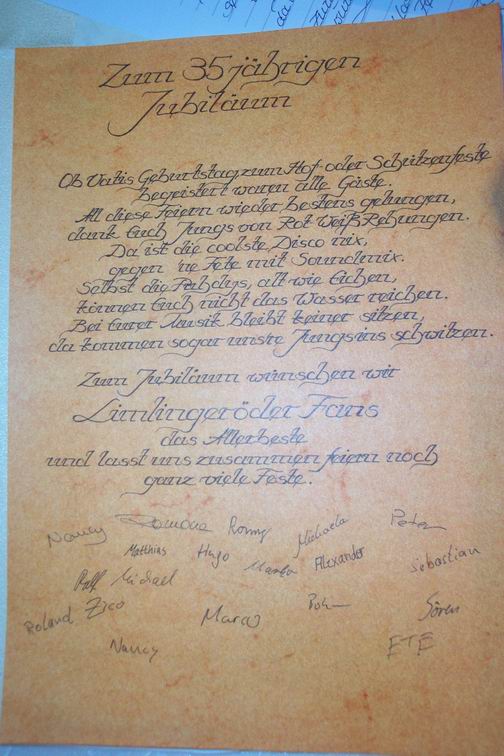 Zum 35 jährigen
Jubiläum
Ob Vatis Geburtstag, zum Hof- oder Schützenfeste
begeistert waren alle Gäste.
All diese Feiern wieder bestens gelungen,
dank Euch Jungs von Rot Weiß Rehungen.
Da ist die coolste Disco nix,
gegen 'ne Fete mit Soundmix.
Selbst die Puhdys, alt wie Eichen,
können Euch nicht das Wasser reichen.
Bei Eurer Musik bleibt keiner sitzen,
da kommen sogar unsre Jungs ins schwitzen.
Zum Jubiläum wünschen wir
Limlingeröder Fans
das Allerbeste
und lasst uns zusammen feiern noch
ganz viele Feste.
Nancy Ramona Ronny Michaela Peter
Matthias Hugo Alexander Sebastian
Ralf Michael
Roland Zico Marco Sören
Nancy ETE